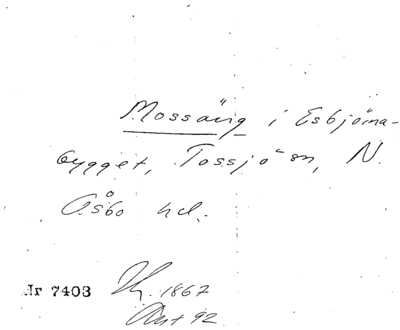 Mossäng i Esbjörna-
bygget, Tossjö sn, N.
Åsbo hd.
Nr 7403 Hy. 1867
Avst 92